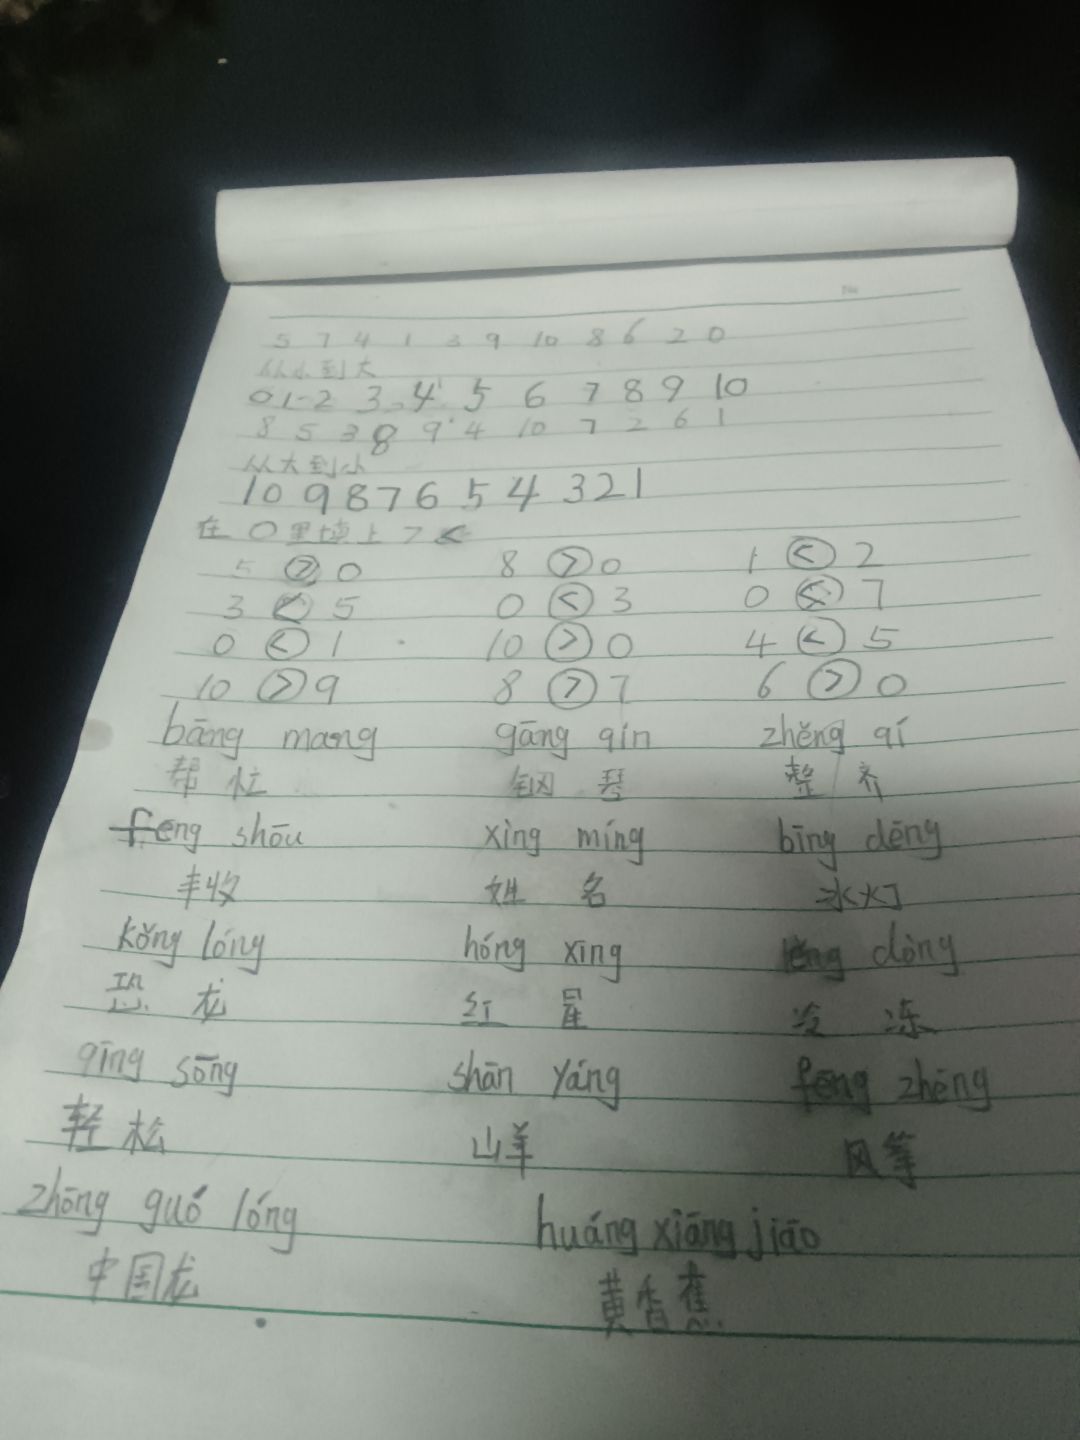 5 7 4 1 3 9 10 8 6 2 0
从小到大
0 1 2 3 4 5 6 7 8 9 10
8 5 3 8 9 4 10 7 2 6 1
从大到小
10 9 8 7 6 5 4 3 2 1
在 ○ 里填上 > <
5 > 0 8 > 0 1 < 2
3 < 5 0 < 3 0 < 7
0 < 1 10 > 0 4 < 5
10 > 9 8 > 7 6 > 0
bāng mang gāng qín zhěng qí
帮 忙 钢 琴 整 齐
fēng shōu xìng míng bīng dēng
丰收 姓 名 冰灯
kǒng lóng hóng xīng lěng dòng
恐 龙 红 星 冷 冻
qīng sōng shān yáng fēng zhēng
轻 松 山羊 风筝
zhōng guó lóng huáng xiāng jiāo
中国龙 黄香蕉